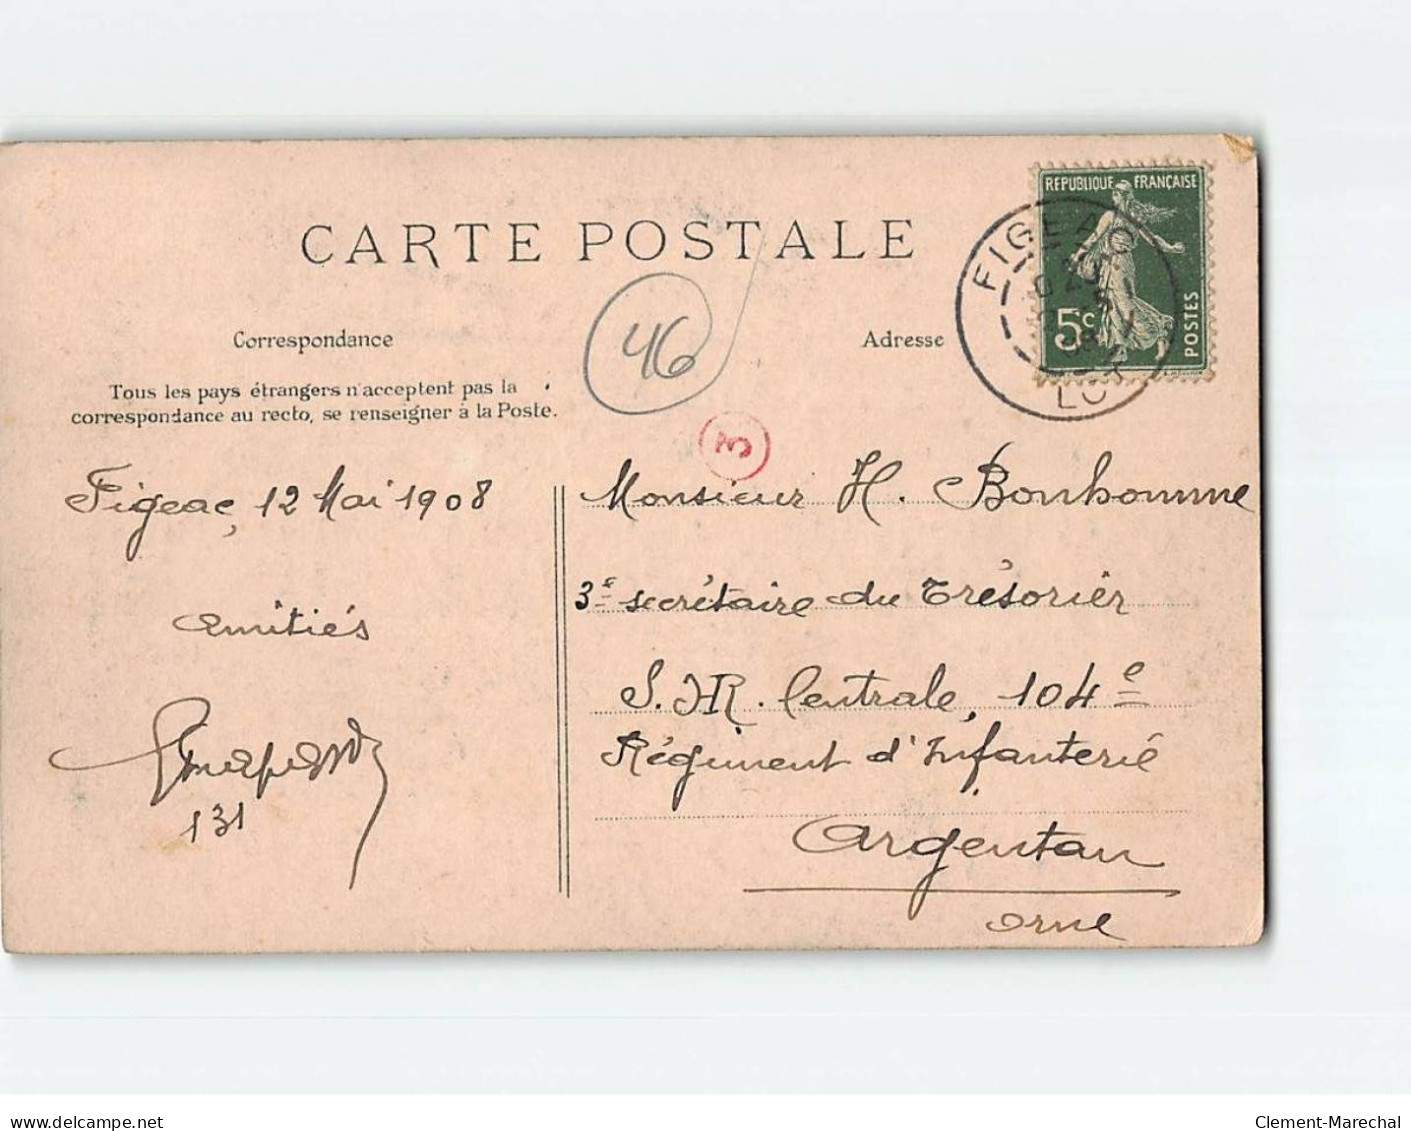 CARTE POSTALE
RÉPUBLIQUE FRANÇAISE
5c
POSTES
FIGEAC
LOT
46
Correspondance
Adresse
Tous les pays étrangers n'acceptent pas la
correspondance au recto, se renseigner à la Poste.
3
Figeac, 12 Mai 1908
Amitiés
131
Monsieur H. Bonhomme
3e secrétaire du Trésorier
S.H.R. Centrale, 104e
Régiment d'Infanterie
Argentan
Orne
delcampe.net
Clement-Marechal